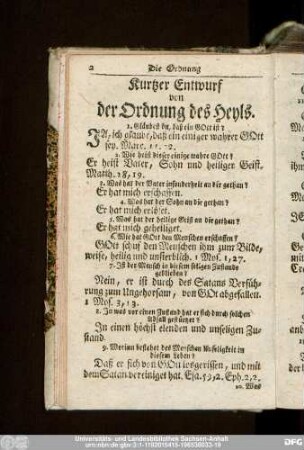 2 Die Ordnung
Kurtzer Entwurf
von
der Ordnung des Heyls.
1. Gläubest du, daß ein GOtt ist?
JA, ich glaube, daß ein einiger wahrer GOtt
sey. Marc.
2. Wie heist dieser einige wahre GOtt?
Er heist Vater, Sohn und heiliger Geist.
Matth. 28, 19.
3. Was hat der Vater insonderheit an dir gethan?
Er hat mich erschaffen.
4. Was hat der Sohn an dir gethan?
Er hat mich erlöset.
5. Was hat der heilige Geist an dir gethan?
Er hat mich geheiliget.
6. Wie hat GOtt den Menschen erschaffen?
GOtt schuf den Menschen ihm zum Bilde,
weise, heilig und unsterblich. 1 Mos. 1, 27.
7. Ist der Mensch in diesem seligen Zustande
geblieben?
Nein, er ist durch des Satans Verfüh-
rung zum Ungehorsam, von GOtt abgefallen.
1 Mos. 3, 13.
8. In was vor einen Zustand hat er sich durch solchen
Abfall gestürtzet?
In einen höchst elenden und unseligen Zu-
stand.
9. Worinn bestehet des Menschen Unseligkeit in
diesem Leben?
Daß er sich von GOtt losgerissen, und mit
dem Satan vereiniget hat. Esa. 59, 2. Eph. 2, 2.
10. Was
Universitäts- und Landesbibliothek Sachsen-Anhalt